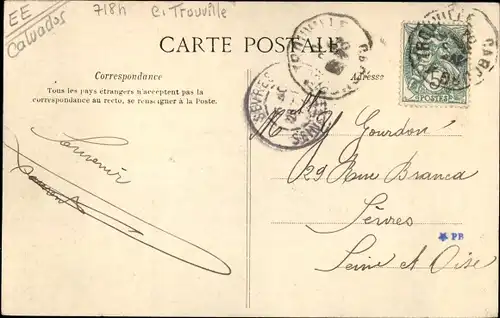 EE
Calvados
718h C. Trouville
CARTE POSTALE
Correspondance
Tous les pays étrangers n'acceptent pas la
correspondance au recto, se renseigner à la Poste.
Adresse
TROUVILLE
TROUVILLE
SEVRES
5
POSTES
Souvenir
Gourdon
29 Rue Branca
Sèvres
PB
Seine et Oise